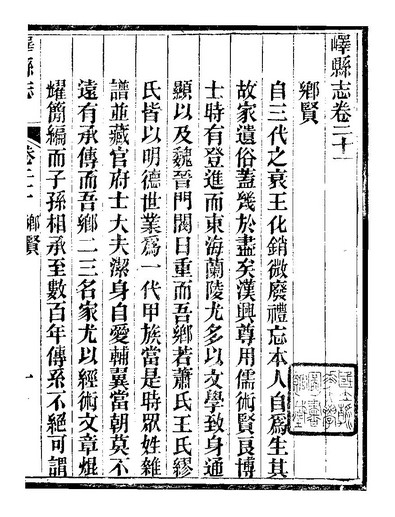 嶧縣志卷二十一
鄉賢
自三代之衰王化銷微廢禮忘本人自爲生其
故家遺俗蓋幾於盡矣漢興尊用儒術賢良博
士時有登進而東海蘭陵尤多以文學致身通
顯以及魏晉門閥日重而吾鄉若蕭氏王氏繆
氏皆以明德世業爲一代甲族當是時眾姓雜
譜並藏官府士大夫潔身自愛輔翼當朝莫不
遠有承傳而吾鄉二三名家尤以經術文章焜
燿簡編而子孫相承至數百年傳系不絕可謂
嶧縣志
卷二十一
鄉賢
一